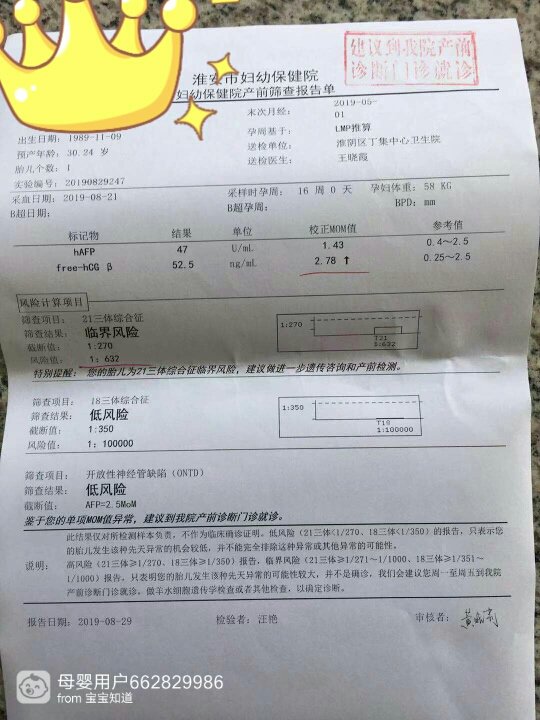 建议到我院产前
诊断门诊就诊
淮安市妇幼保健院
妇幼保健院产前筛查报告单
末次月经: 2019-05-01
出生日期: 1989-11-09
孕周基于: LMP推算
预产年龄: 30.24 岁
送检单位: 淮阴区丁集中心卫生院
胎儿个数: 1
送检医生: 王晓霞
实验编号: 20190829247
采血日期: 2019-08-21 采样时孕周: 16 周 0 天 孕妇体重: 58 KG
B超日期: B超孕周: BPD: mm
标记物 结果 单位 校正MOM值 参考值
hAFP 47 U/mL 1.43 0.4~2.5
free-hCG β 52.5 ng/mL 2.78 ↑ 0.25~2.5
风险计算项目
筛查项目: 21三体综合征
筛查结果: 临界风险
截断值: 1:270
风险值: 1: 632
1:270
T21
1:632
特别提醒: 您的胎儿为21三体综合征临界风险, 建议做进一步遗传咨询和产前检测。
筛查项目: 18三体综合征
筛查结果: 低风险
截断值: 1:350
风险值: 1: 100000
1:350
T18
1:100000
筛查项目: 开放性神经管缺陷 (ONTD)
筛查结果: 低风险
截断值: AFP=2.5MoM
鉴于您的单项MOM值异常, 建议到我院产前诊断门诊就诊。
此结果仅对所检测样本负责, 不作为临床确诊证明。低风险 (21三体<1/270、18三体<1/350) 的报告, 只表示您
的胎儿发生该种先天异常的机会较低, 并不能完全排除这种异常或其他异常的可能性。
说明: 高风险 (21三体≥1/270、18三体≥1/350) 报告, 临界风险 (21三体≥1/271~1/1000、18三体≥1/351~
1/1000) 报告, 只表明您的胎儿发生该种先天异常的可能性较大, 并不是确诊, 我们会建议您周一至周五到我院
产前诊断门诊就诊, 做羊水细胞遗传学检查或者其他检查, 以确定诊断。
报告日期: 2019-08-29 检验者: 汪艳 审核者:
母婴用户662829986
from 宝宝知道